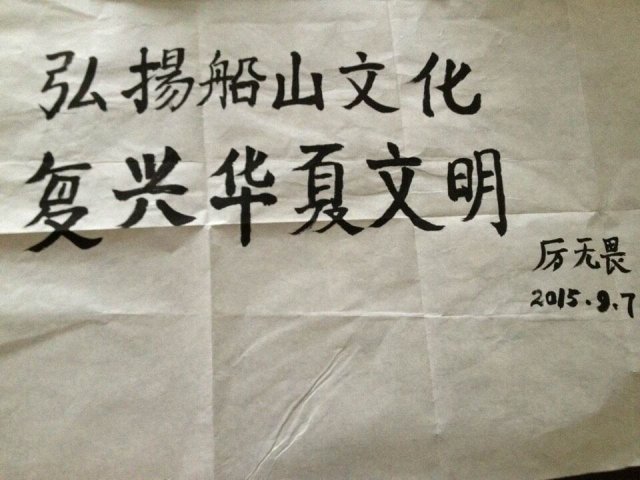 弘揚船山文化
复兴华夏文明
厉无畏
2015.9.7